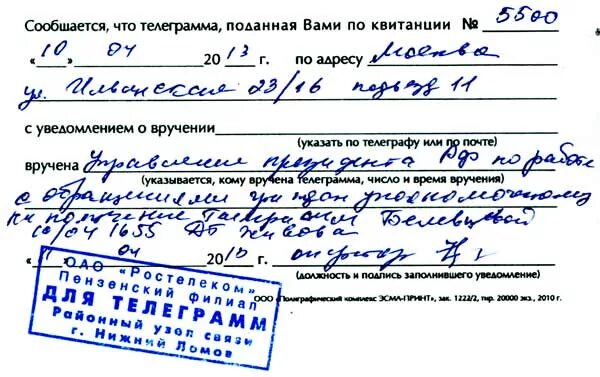 Сообщается, что телеграмма, поданная Вами по квитанции № 5500
„10“ 04 2013 г. по адресу Москва
ул. Ильинская 23/16 подъезд 11
с уведомлением о вручении
(указать по телеграфу или по почте)
вручена Управление президента РФ по работе
(указывается, кому вручена телеграмма, число и время вручения)
с обращениями граждан уполномоченному
на получение телеграмм
10/04 1655
04 2010 оператор
(должность и подпись заполнившего уведомление)
ООО «Полиграфический комплекс ЭСМА-ПРИНТ», зак. 1222/2, тир. 20000 экз., 2010 г.
ОАО «Ростелеком»
Пензенский филиал
ДЛЯ ТЕЛЕГРАММ
Районный узел связи
г. Нижний Ломов